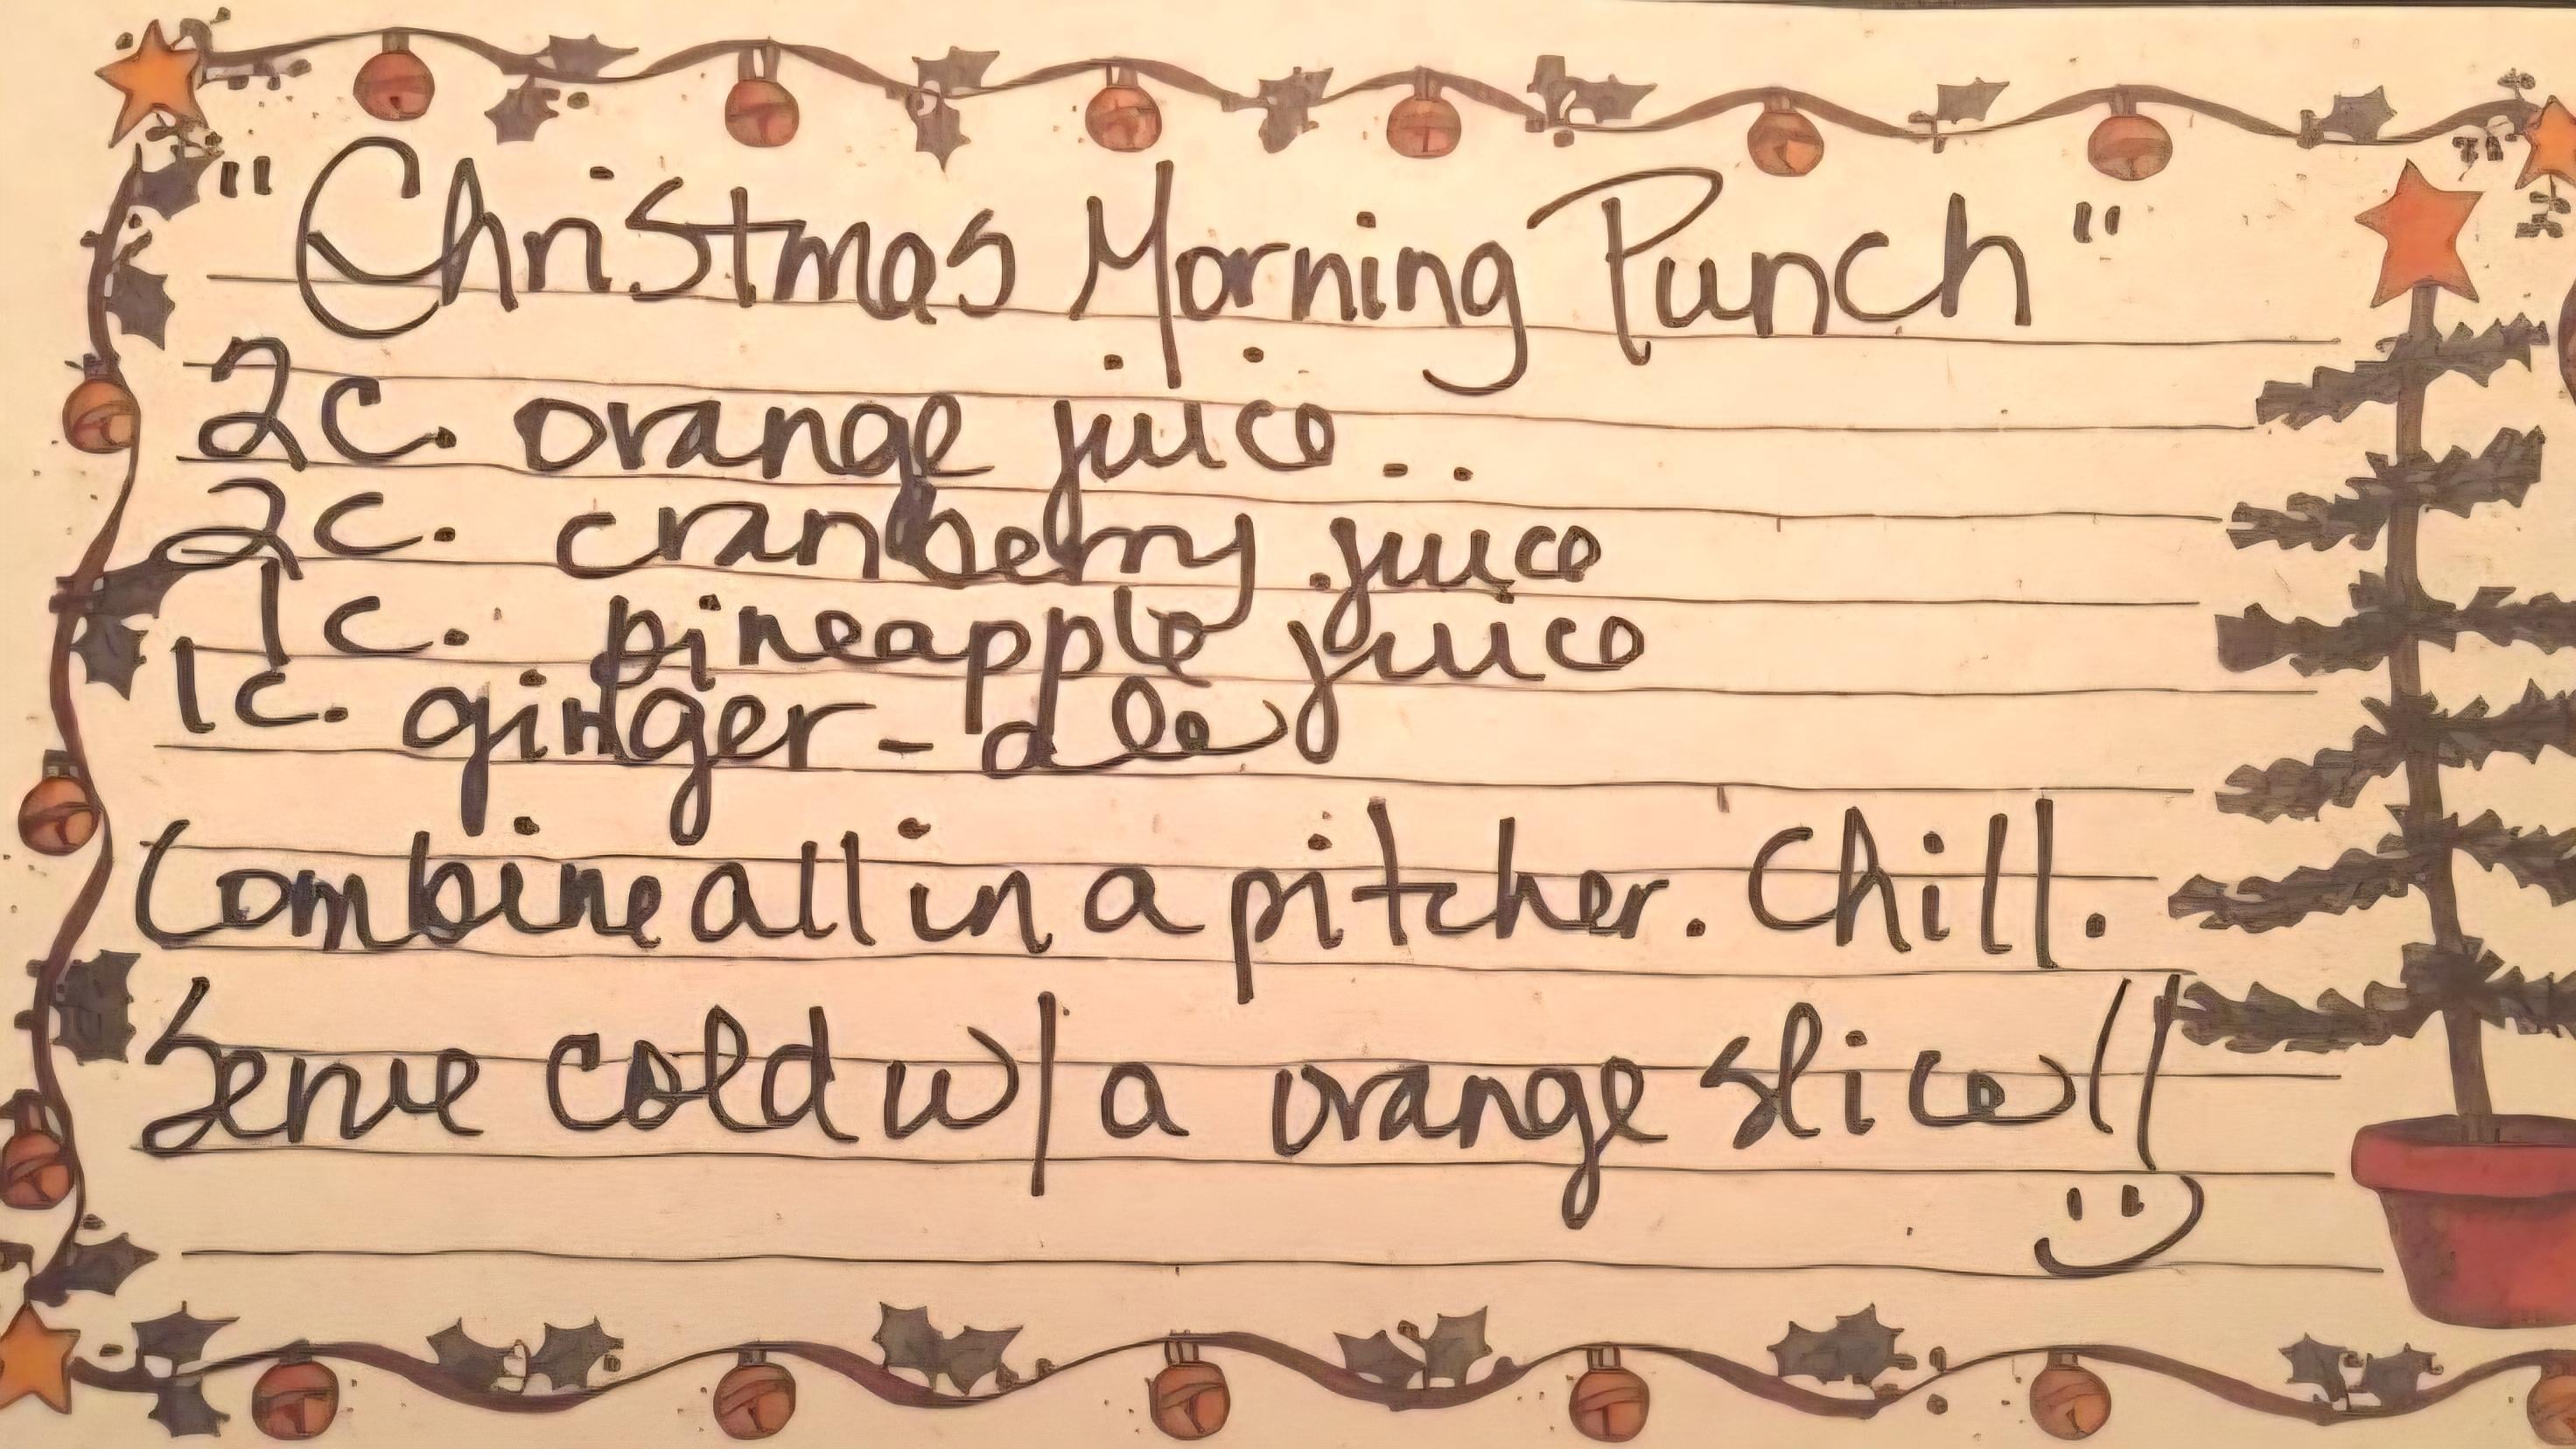 "Christmas Morning Punch"
2c. orange juice
2c. cranberry juice
1c. pineapple juice
1c. ginger-ale
Combine all in a pitcher. Chill.
Serve cold w/ a orange slice!!